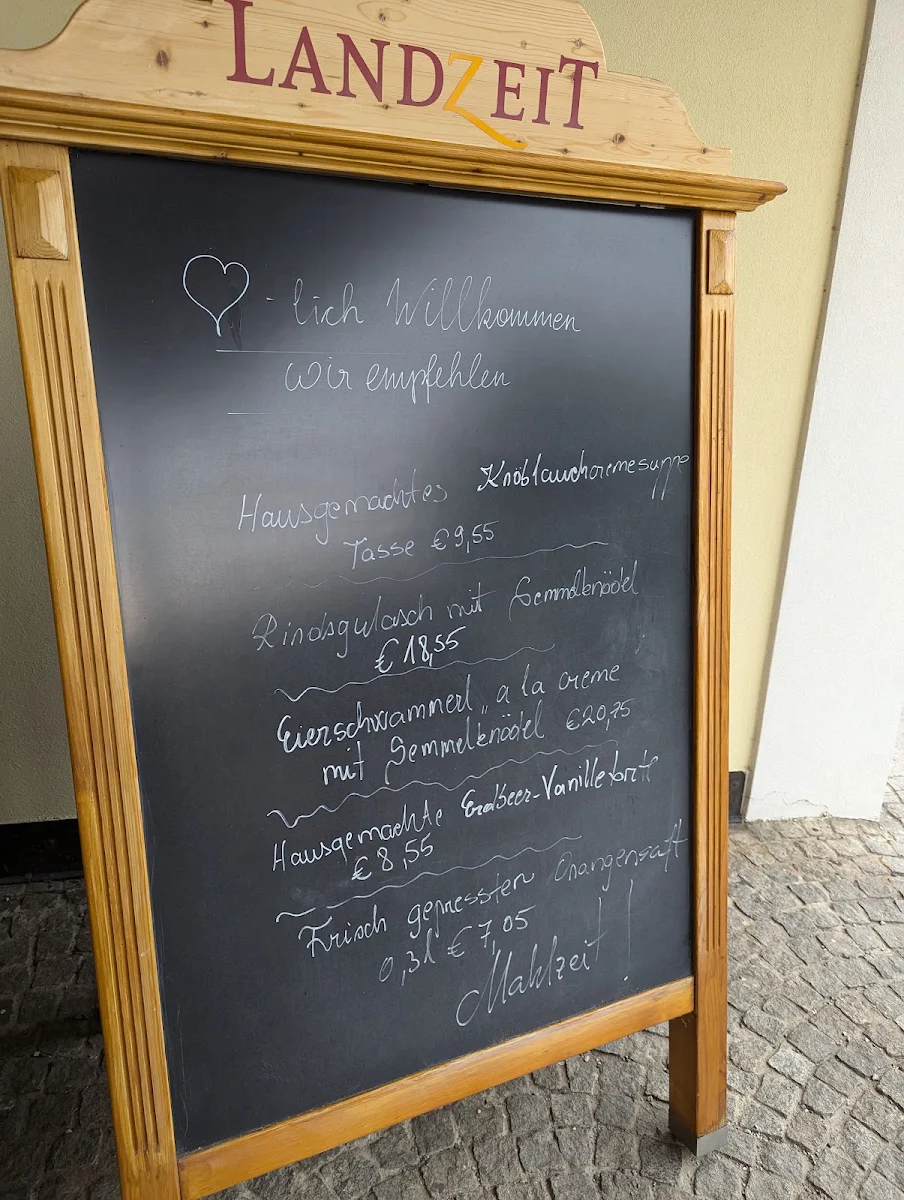 LANDZEIT
♡-lich Willkommen
wir empfehlen
Hausgemachtes Knoblauchcremesuppe
Tasse €9,55
Rindsgulasch mit Semmelknödel
€18,55
Eierschwammerl „a la creme
mit Semmelknödel €20,75
Hausgemachte Erdbeer-Vanilletorte
€8,55
Frisch gepressten Orangensaft
0,3l €7,05
Mahlzeit!